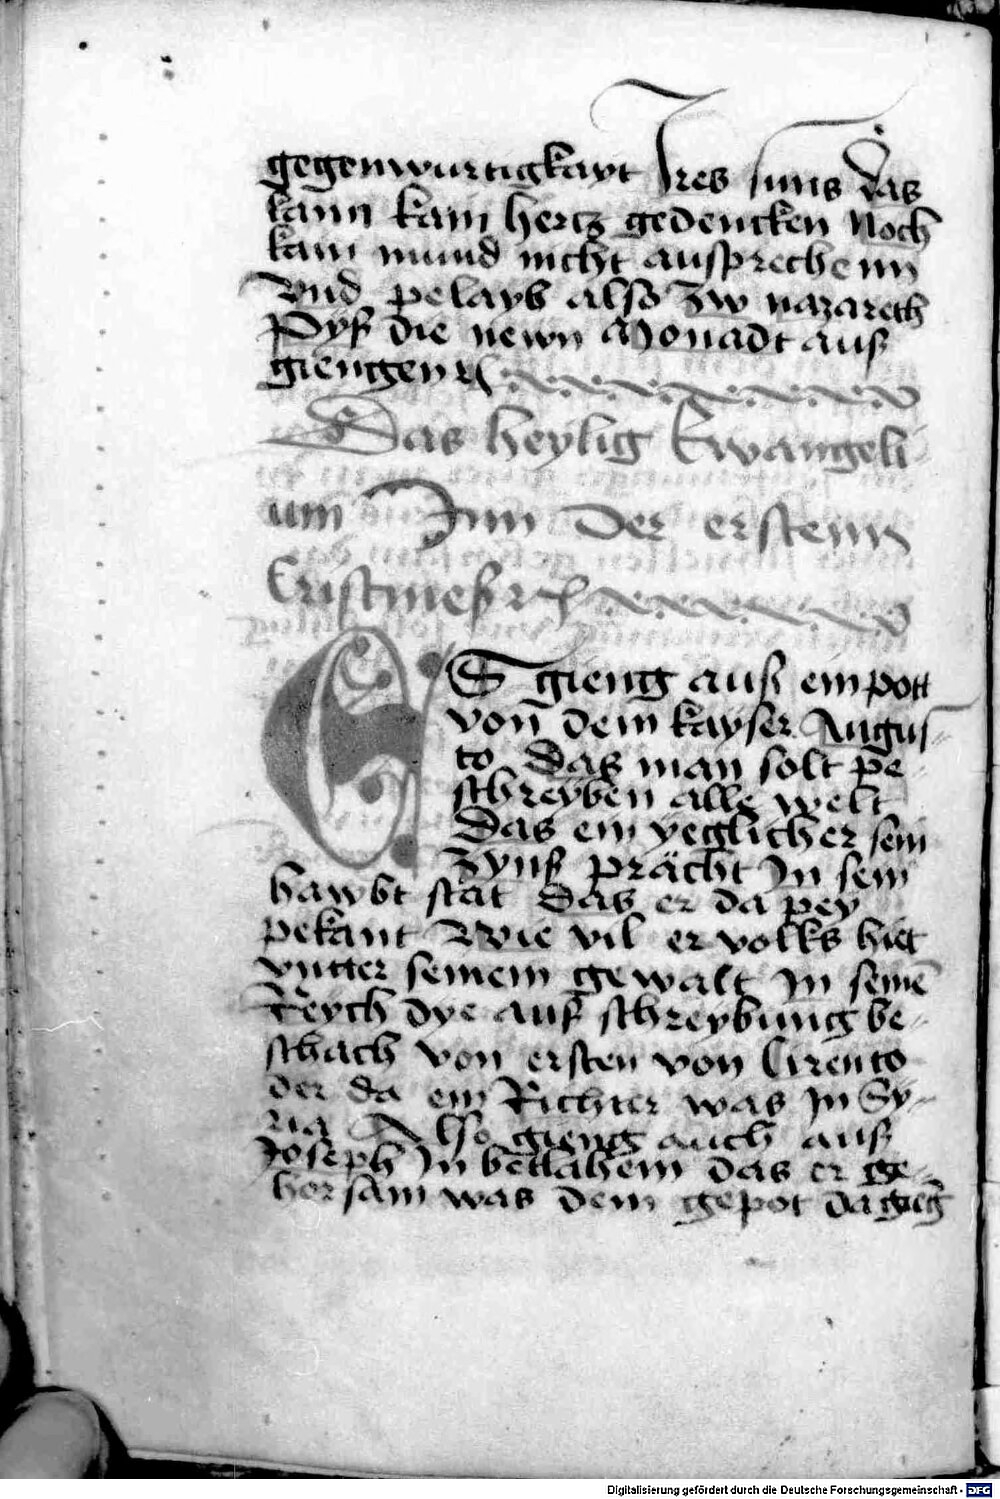 gegenwurtigkayt Ires suns das
kann kain hertz gedencken Noch
kain mund nicht ausprechenn
Vnd pelayb also zw nazareth
Pyß die newn Monadt auß
giengen
Das heylig Ewangeli
um Inn Der erstenn
Cristmeß
ES gieng auß ein pott
von dem kayser Augus
to das man solt pe-
schreyben alle welt
Das ein yeglicher sein
Zynß prächt In sein
hawbt stat Das er da pey
pekant Wie vil er volks hiet
vntter seinem gewalt In seinē
Reych dye auf schreybung be-
schach von ersten von Cirento
der da ein Richter was In Sy-
ria Also gieng auch auß
Joseph In betlahem das er ge-
horsam was dem gepot da gieg
Digitalisierung gefördert durch die Deutsche Forschungsgemeinschaft - DFG